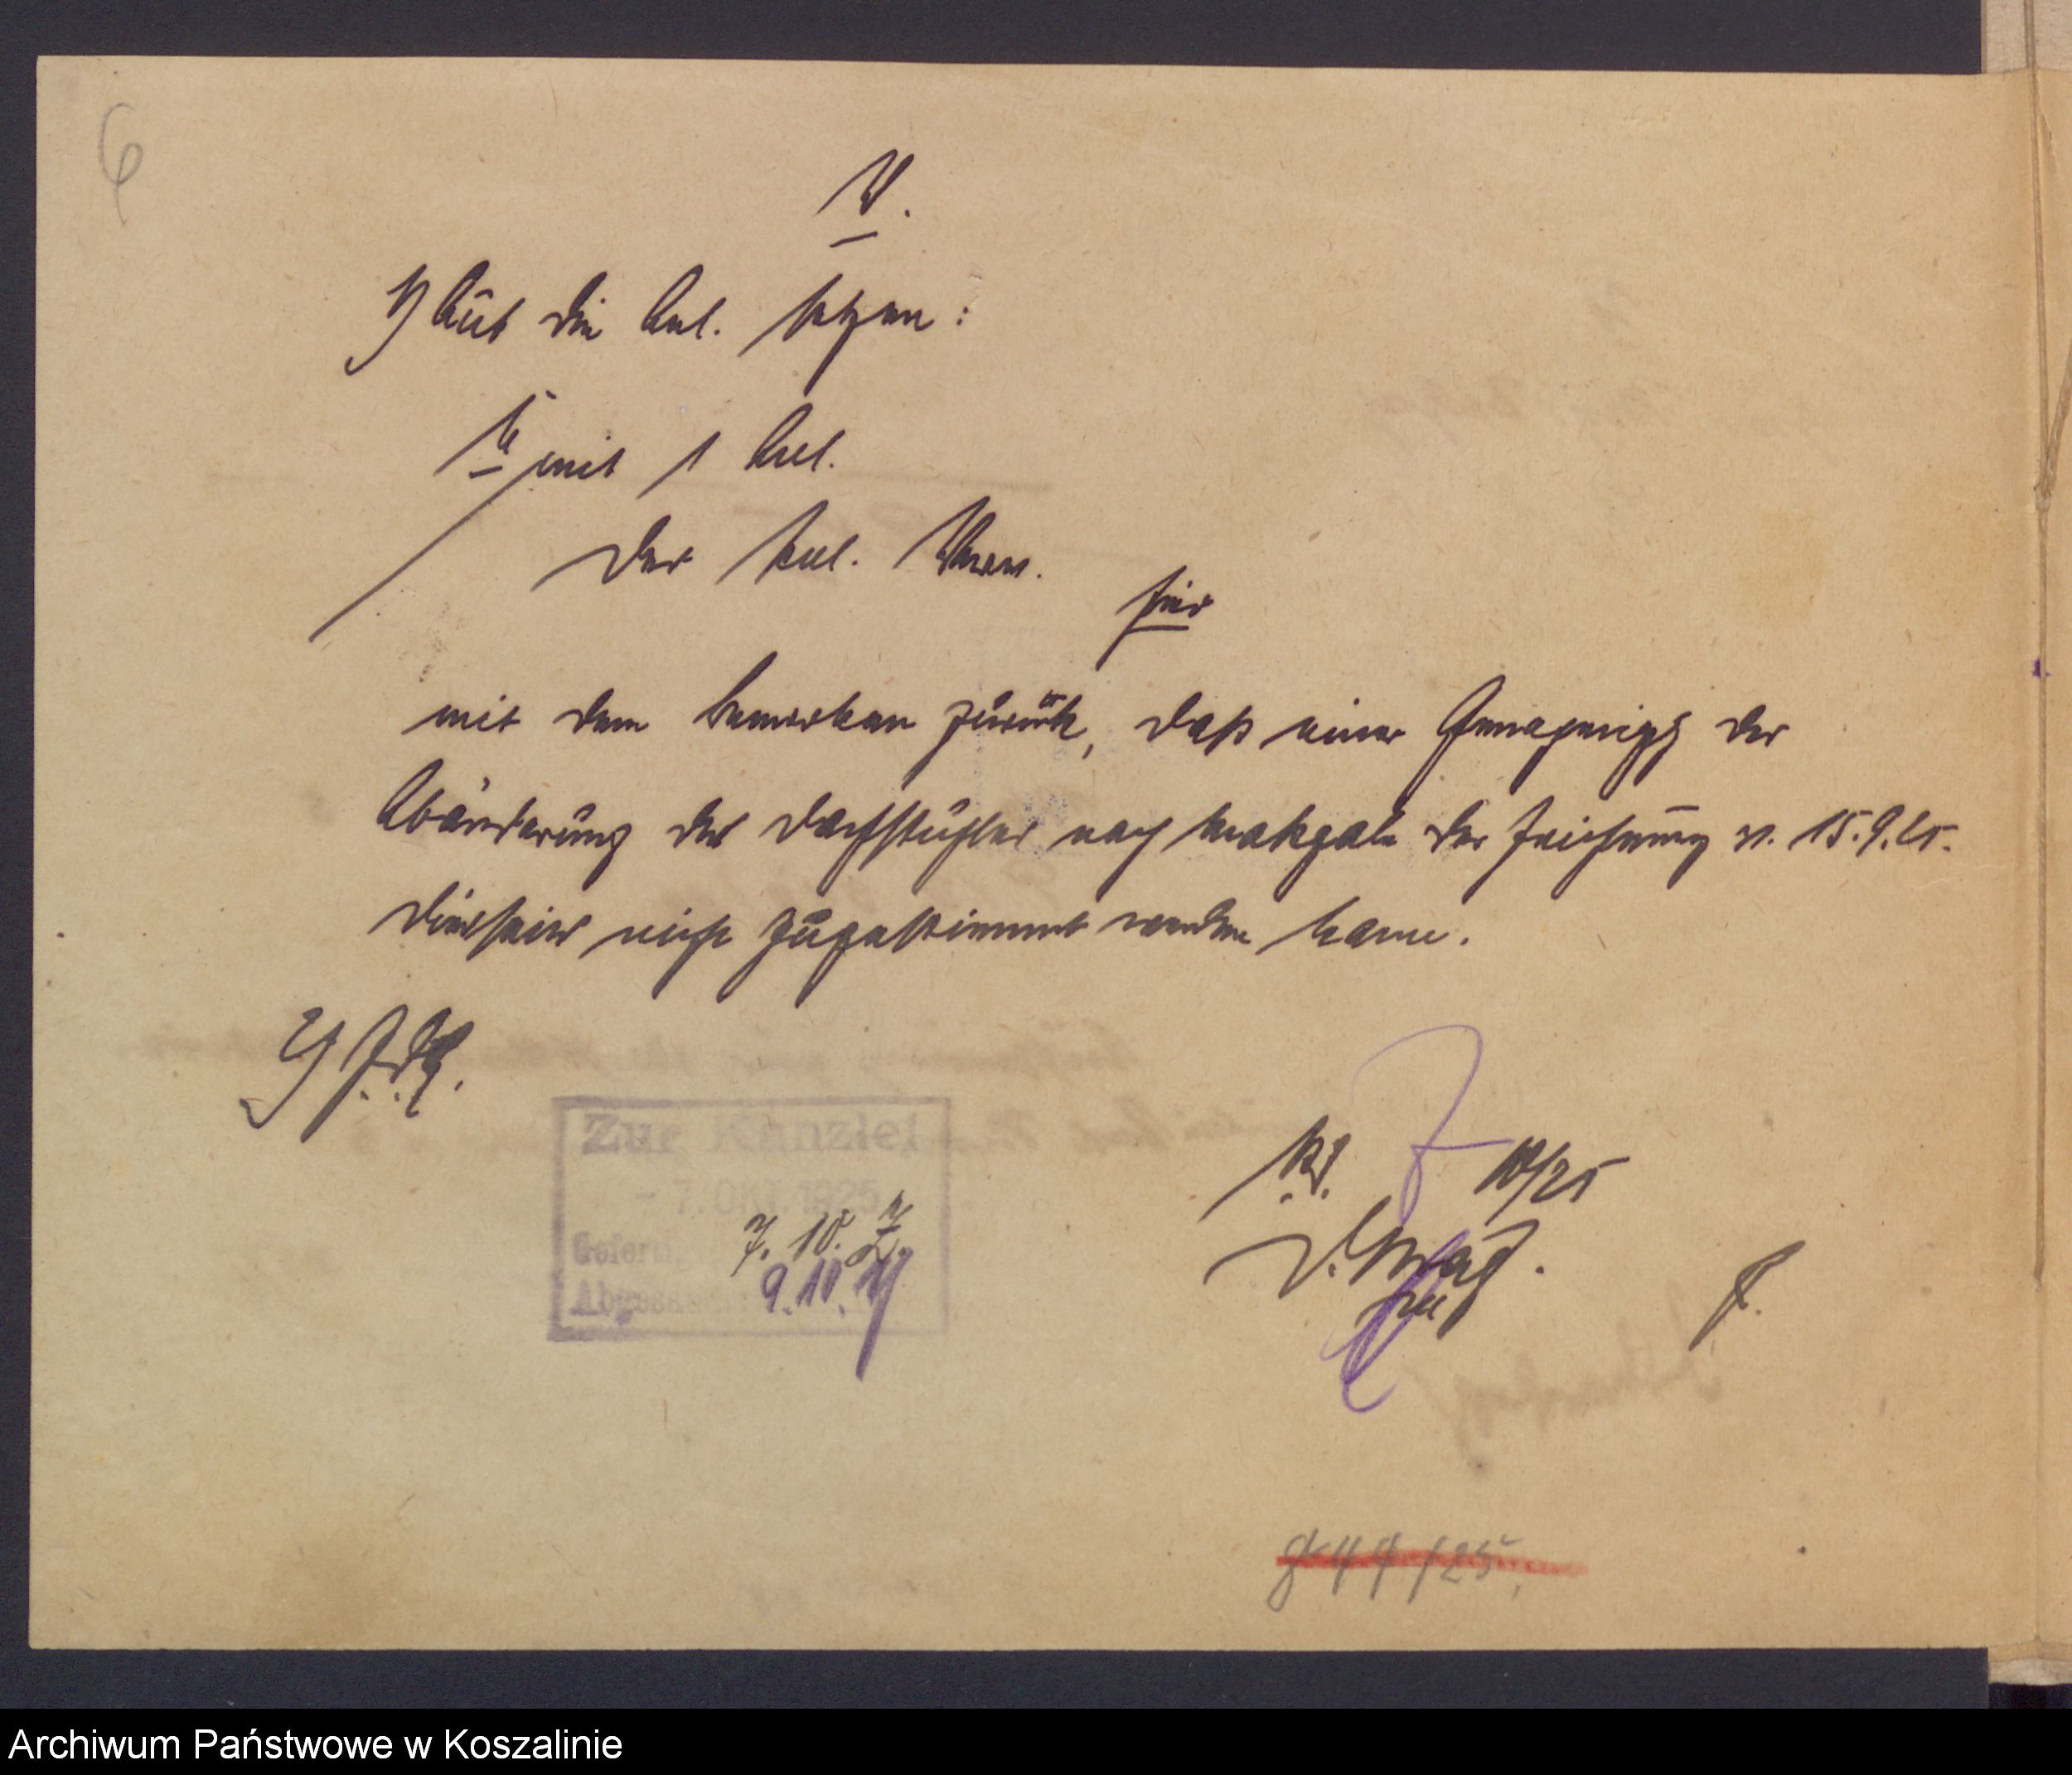 6
V.
1) Auf die Anl. setzen:
U mit 1 Anl.
der Pol. Verw.
hier
mit dem Bemerken zurück, daß einer Genehmigg der
Abänderung des Dachstuhles nach Maßgabe der Zeichnung v. 15.9.25.
diesseits nicht zugestimmt werden kann.
2) Z.d.A.
Zur Kanzlei
- 7. OKT. 1925
7. 10. Z.
Abgesandt:
9. 10.
7 10/25
D. Mag.
F.
/25
Archiwum Państwowe w Koszalinie